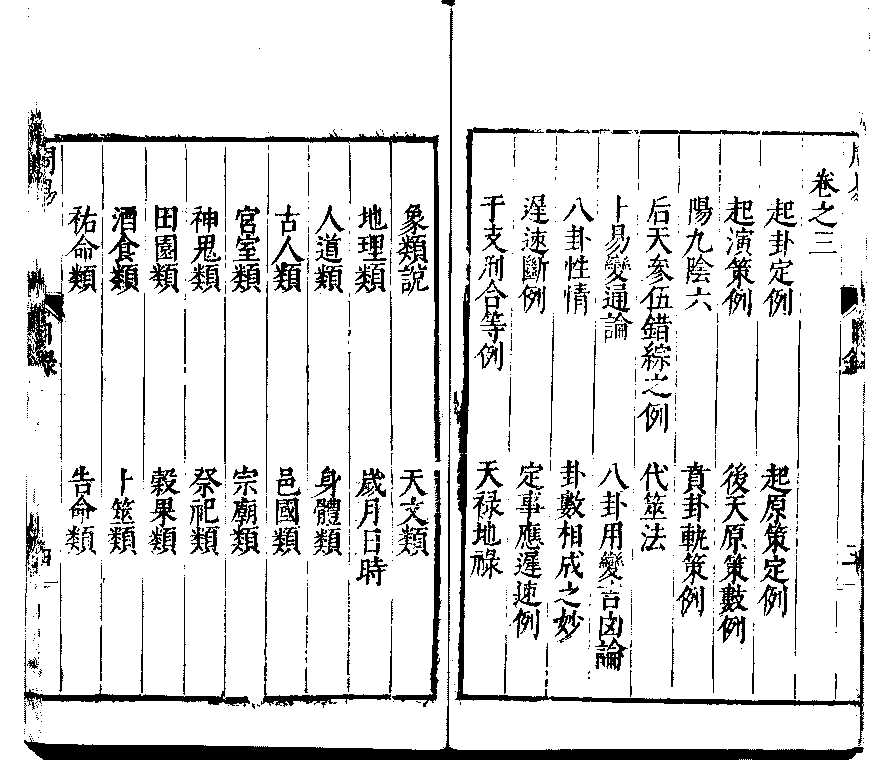 卷之三
起卦定例　起原策定例
起演策例　後天原策數例
陽九陰六　賁卦軌策例
后天參伍錯綜之例　代筮法
卜易變通論　八卦用變吉凶論
八卦性情　卦數相成之妙
遲速斷例　定事應遲速例
干支刑合等例　天禄地祿
象類說　天文類
地理類　歲月日時
人道類　身體類
古人類　邑國類
宮室類　宗廟類
神鬼類　祭祀類
田園類　穀果類
酒食類　卜筮類
祐命類　告命類
周易
目录
四